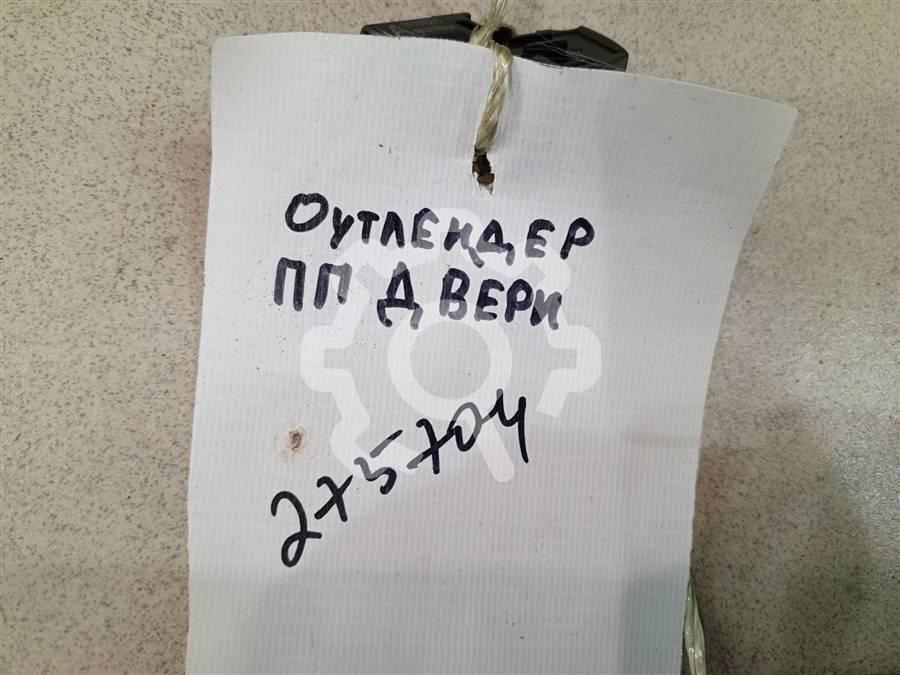 Оутлендер
ПП Двери
275704